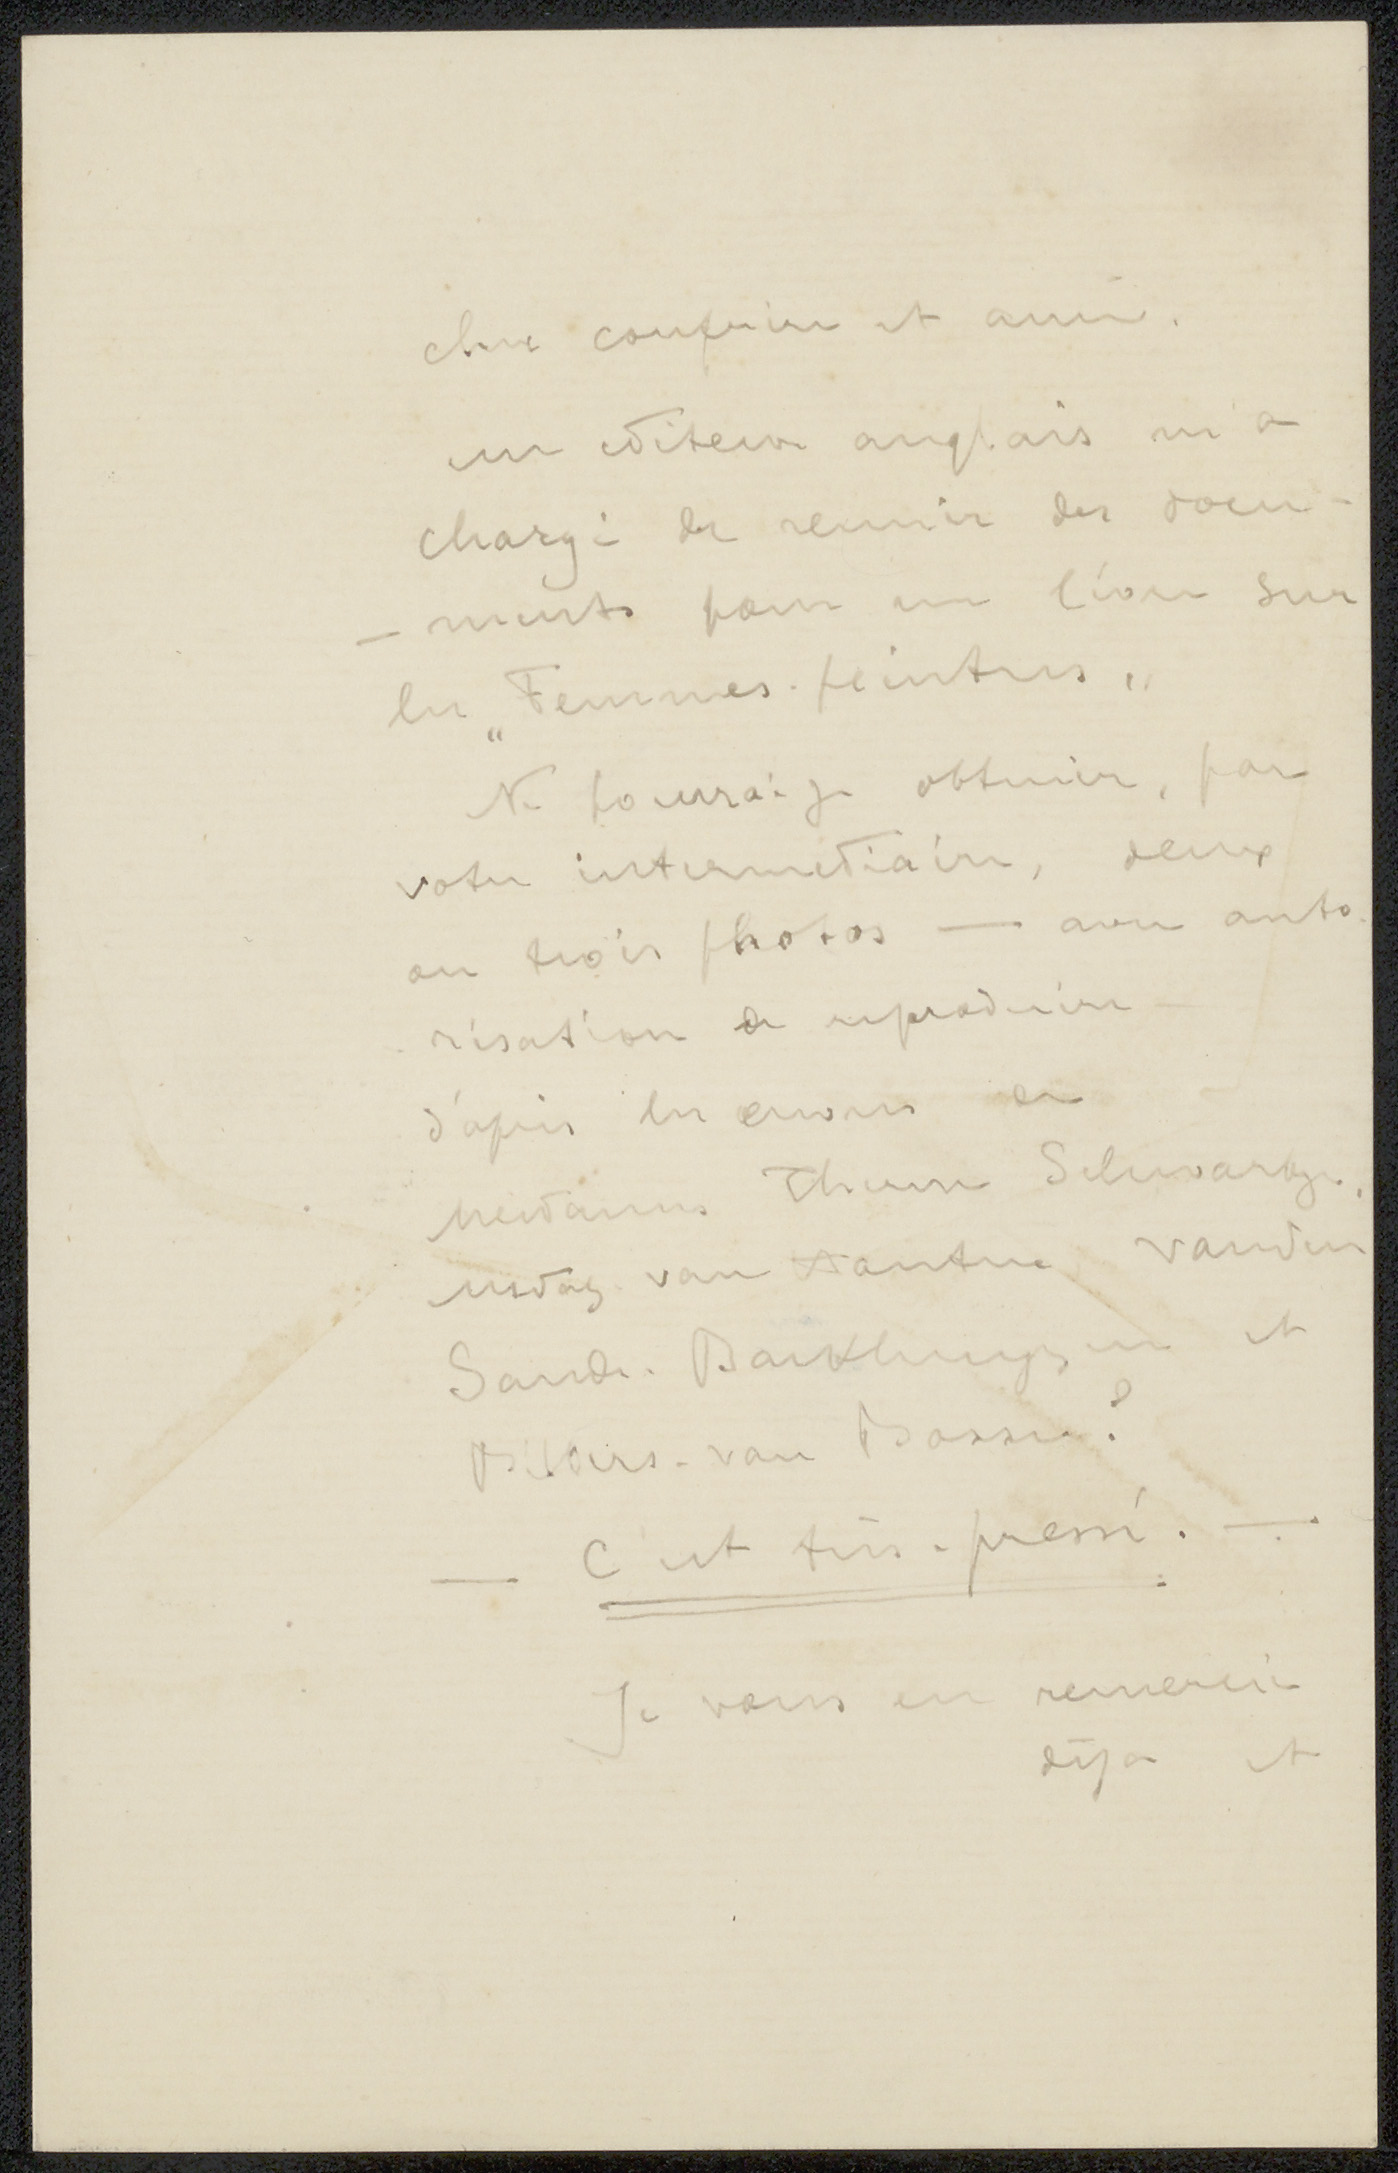 cher confrère et ami.
un editeur anglais m'a
chargé de reunir des docu-
- ments pour un livre sur
les „Femmes-peintres„
Ne pourrai-je obtenir, par
votre intermediaire, deux
ou trois photos — avec auto-
risation de reproduire —
d'après les œuvres de
mesdames Therese Schwartze,
Mesdag van Houten, vanden
Sande-Backhuyzen et
Bilders-van Bosse?
— C'est très-pressé. —
Je vous en remercie
déja et